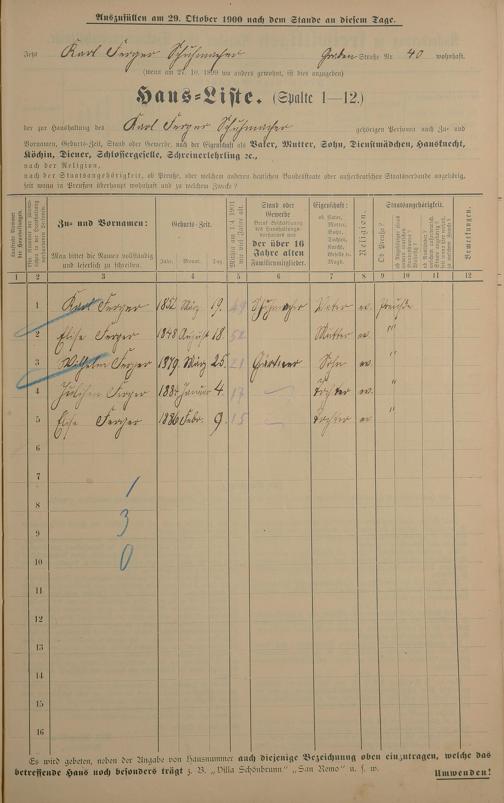 Auszufüllen am 29. Oktober 1900 nach dem Stande an diesem Tage.
Jetzt Karl Ferger Schuhmacher Garten-Straße Nr. 40 wohnhaft.
(wenn am 27. 10. 1899 wo anders gewohnt, ist dies anzugeben)
Haus-Liste. (Spalte 1—12.)
der zur Haushaltung des Karl Ferger Schuhmacher gehörigen Personen nach Zu- und
Vornamen, Geburts-Zeit, Stand oder Gewerbe, nach der Eigenschaft als Vater, Mutter, Sohn, Dienstmädchen, Hausknecht,
Köchin, Diener, Schlossergeselle, Schreinerlehrling ꝛc.,
nach der Religion,
nach der Staatsangehörigkeit, ob Preuße, oder welchem anderen deutschen Bundesstaate oder außerdeutschen Staatsverbande angehörig,
seit wann in Preußen überhaupt wohnhaft und zu welchem Zwecke?
Zu- und Vornamen:
Man bittet die Namen vollständig und leserlich zu schreiben.
Geburts-Zeit.
Jahr. Monat. Tag
Stand oder Gewerbe
der über 16 Jahre alten Familienmitglieder.
Eigenschaft:
ob Vater, Mutter, Sohn, Tochter, Knecht, Geselle ꝛc. Magd.
Religion.
Staatsangehörigkeit.
Ob Preuße?
Bemerkungen.
1 2 3 4 5 6 7 8 9 10 11 12
1 Karl Ferger 1852 März 19. 49 Schuhmacher Vater ev. Preuße
2 Elise Ferger 1848 August 18. 52 Mutter ev. "
3 Wilhelm Ferger 1879 März 25. 21 Gärtner Sohn ev. "
4 Ferger Januar 4. 17 Tochter ev. "
5 Elise Ferger 1886 Febr. 9. 15 Tochter ev "
6
7
1
8
3
9
0
10
11
12
13
14
15
16
Es wird gebeten, neben der Angabe von Hausnummer auch diejenige Bezeichnung oben einzutragen, welche das
betreffende Haus noch besonders trägt z. B. „Villa Schönbrunn" „San Remo" u. s. w. Umwenden!